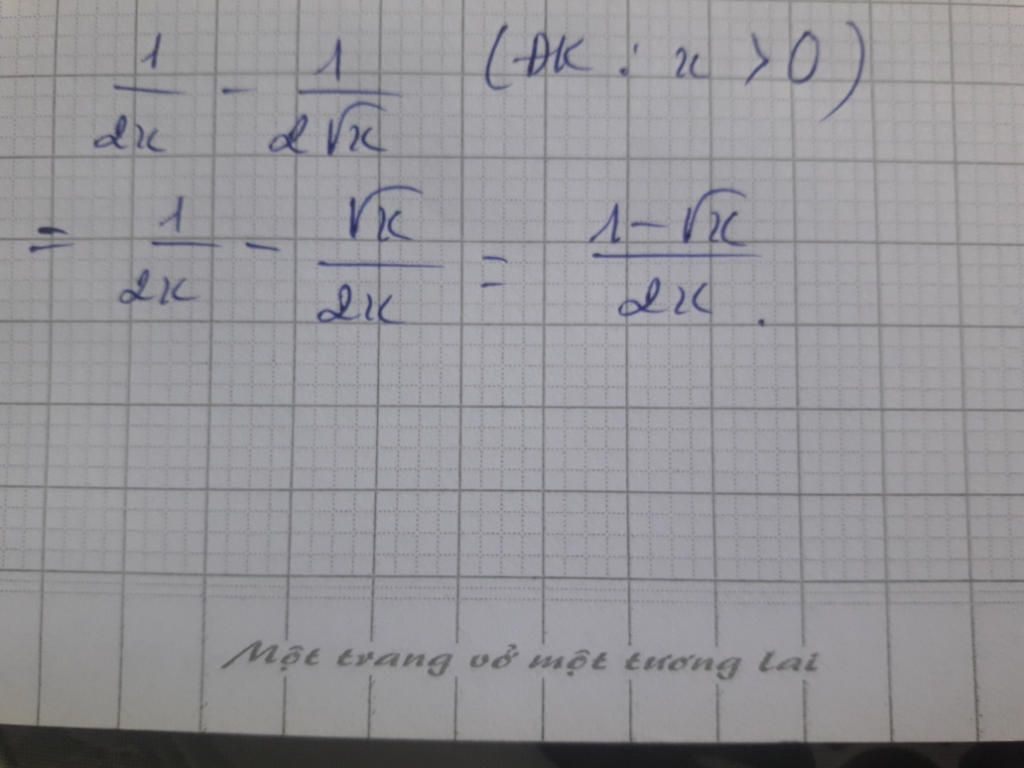 1/2x - 1/2√x (ĐK : x > 0)
= 1/2x - √x/2x = 1-√x/2x.
Một trang vở một tương lai